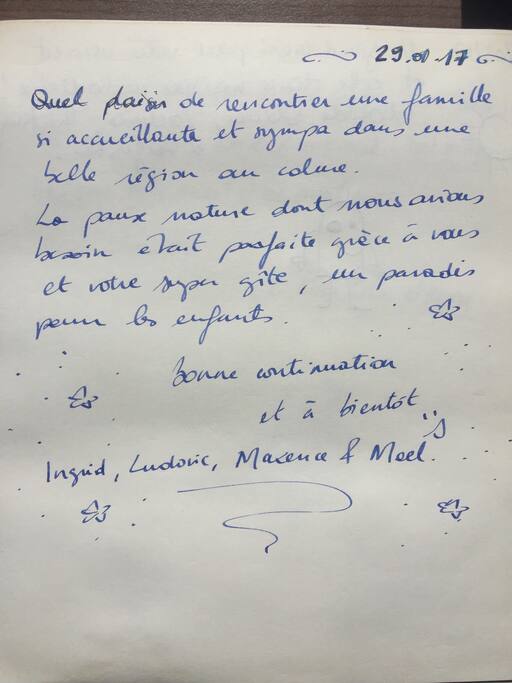 29.01.17
Quel plaisir de rencontrer une famille
si accueillante et sympa dans une
belle région au calme.
La pause nature dont nous avions
besoin était parfaite grâce à vous
et votre super gîte, un paradis
pour les enfants.
bonne continuation
et à bientôt
Ingrid, Ludovic, Maxence & Mael.